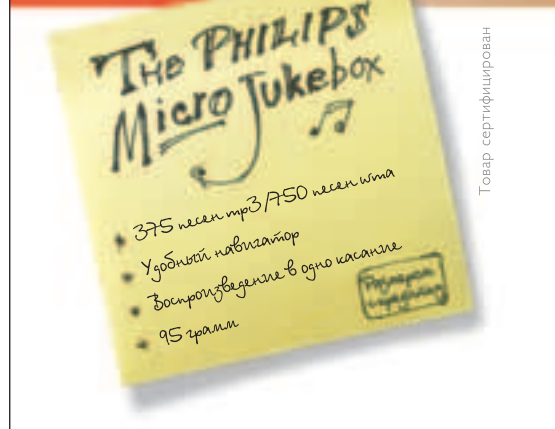 The PHILIPS
Micro Jukebox
375 песен mp3/750 песен wma
Удобный навигатор
Воспроизведение в одно касание
95 грамм
Товар сертифицирован